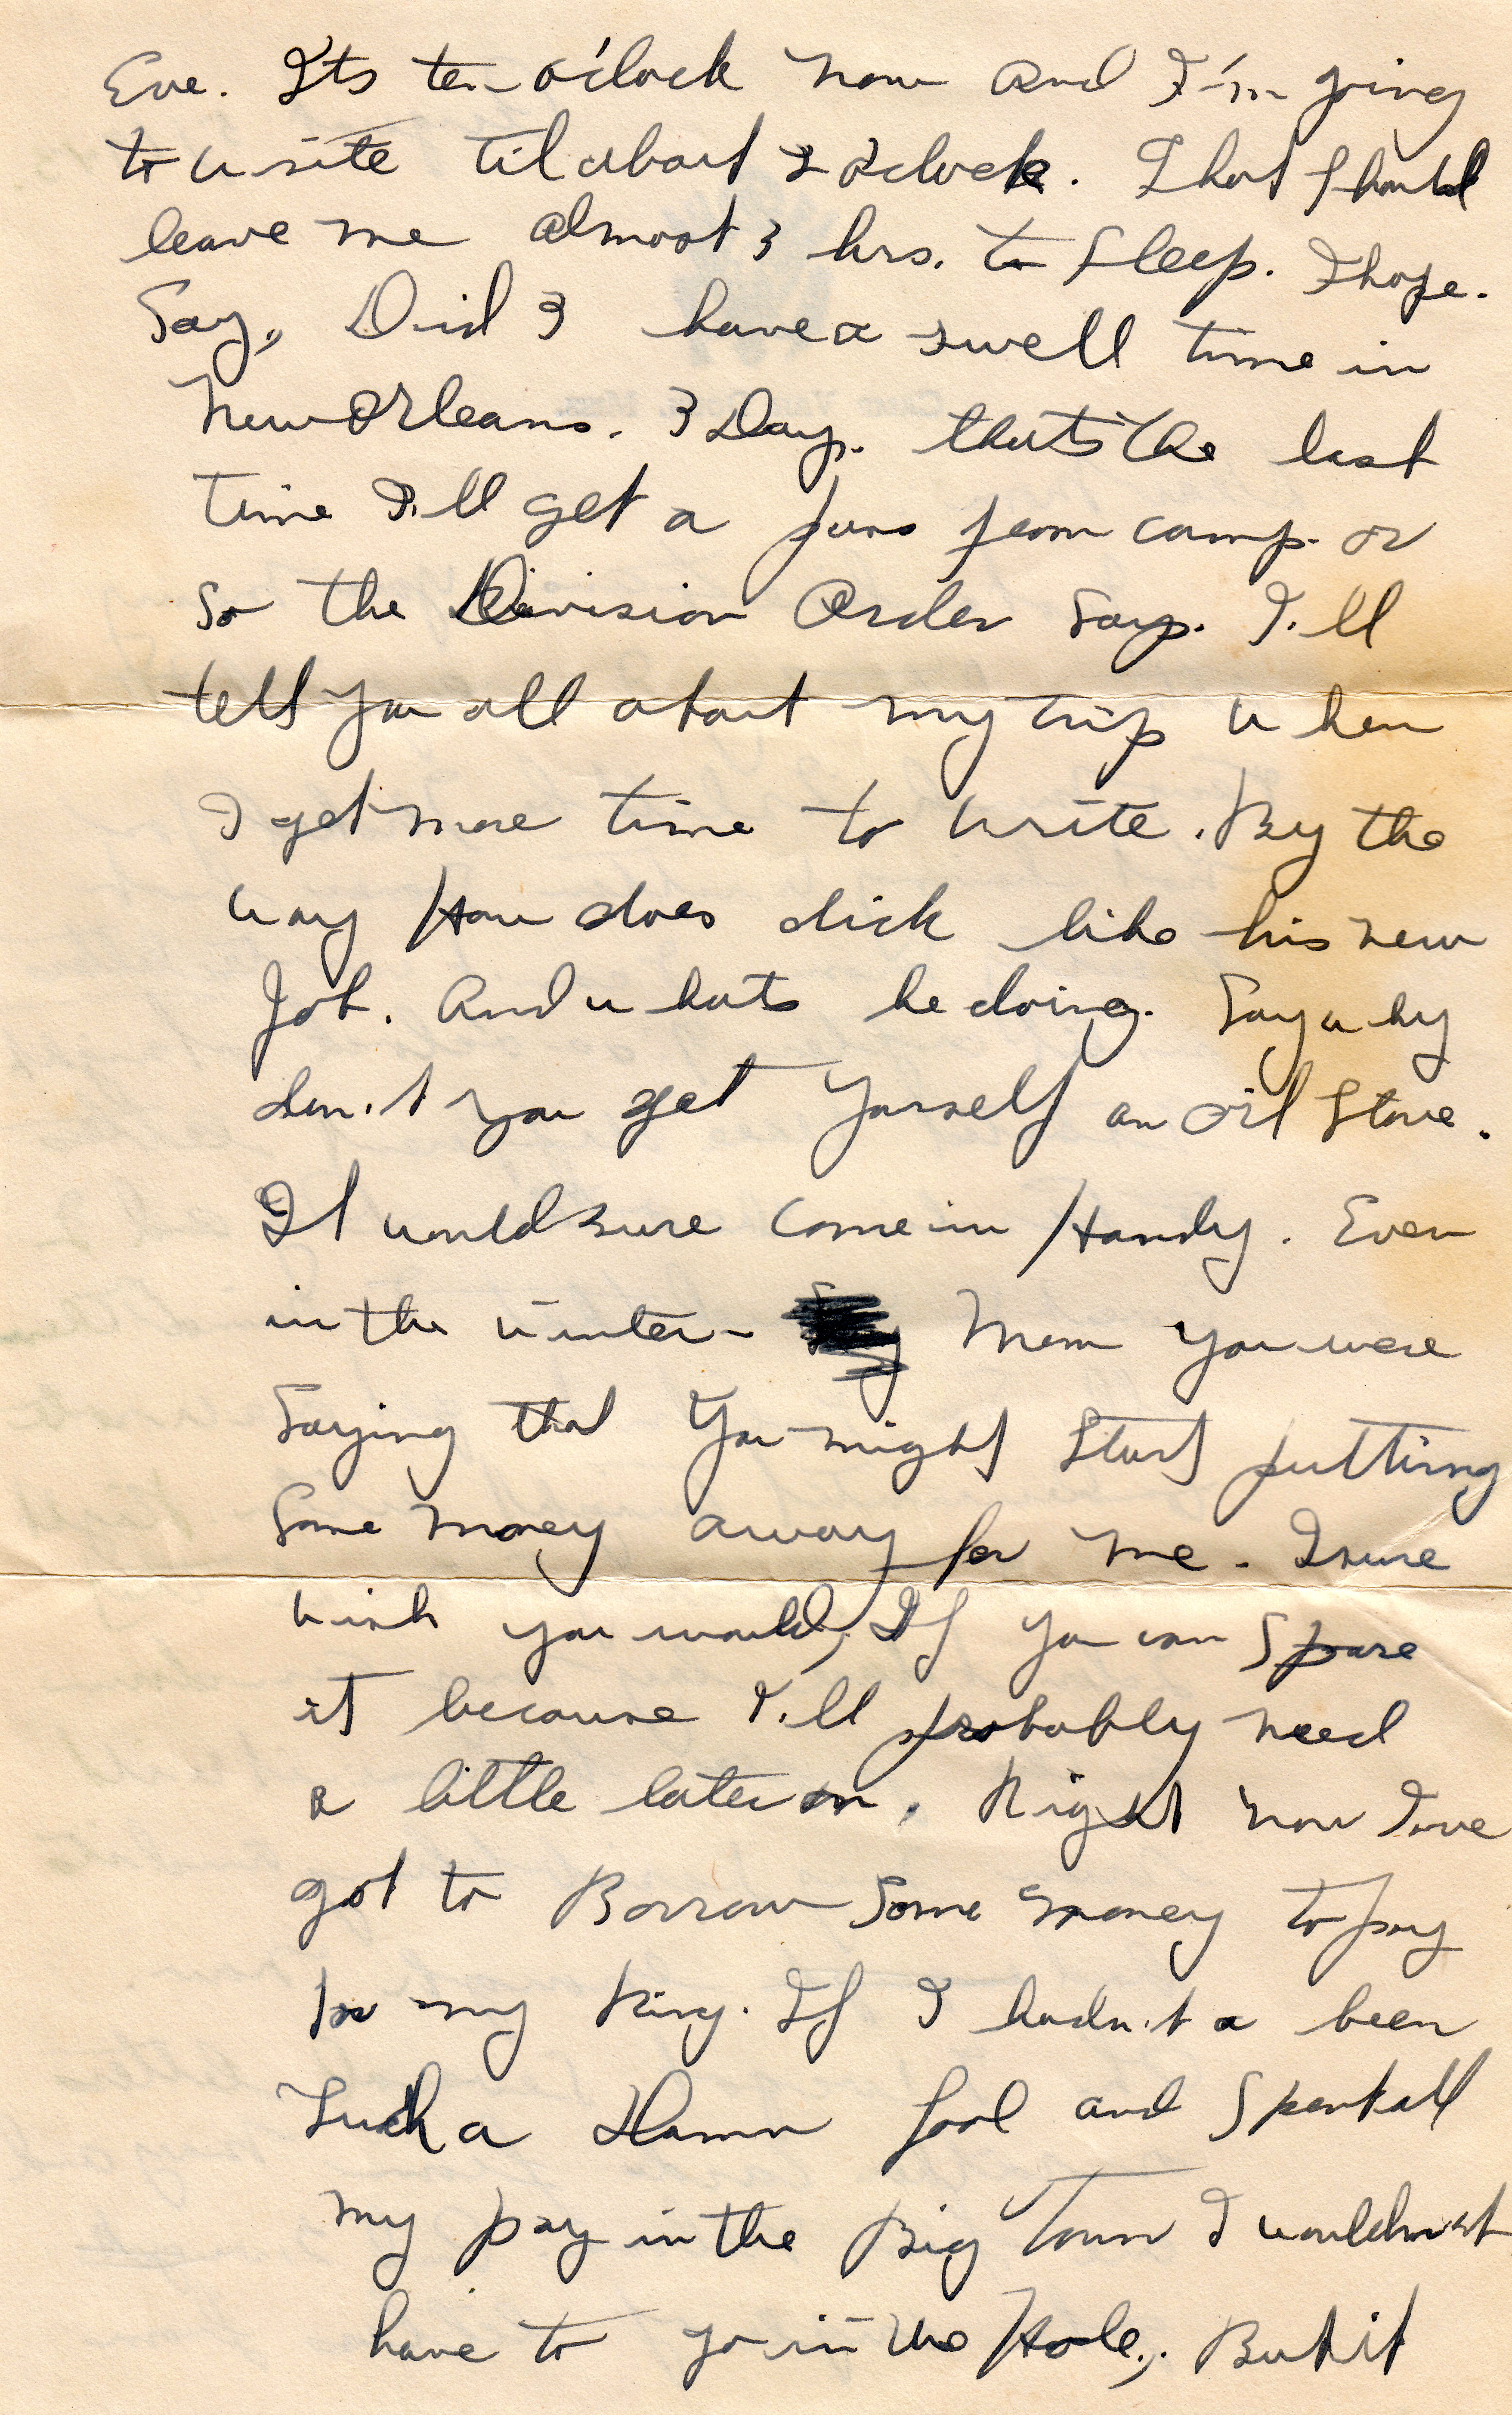 Eve. Its ten o'clock now and I'm going
to write til about 2 o'clock. That should
leave me almost 3 hrs. to sleep. I hope.
Say, Did I have a swell time in
New Orleans. 3 Days. thats the last
time I'll get a pass from camp. or
so the Division Order says. I'll
tell you all about my trip when
I get more time to write. By the
way How does dick like his new
Job. And whats he doing. Say why
don't you get yourself an oil stove.
It would sure come in Handy. Even
in the winter - Mom you were
saying that you might start putting
some money away for me. I sure
wish you would, If you can spare
it because I'll probably need
a little later on. Right now I've
got to Borrow some money to pay
for my Ring. If I hadn't a been
such a Damn fool and spent all
my pay in the Big Town I wouldn't
have to go in the Hole,. But it